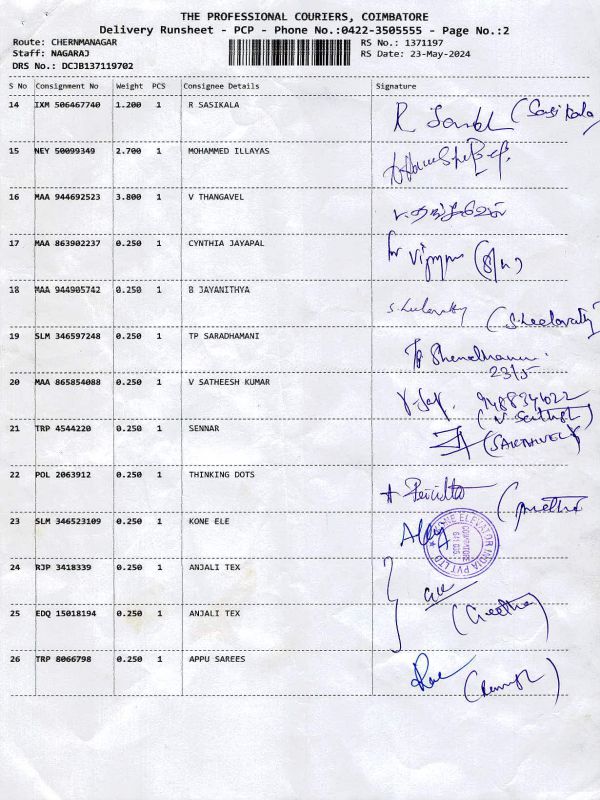 THE PROFESSIONAL COURIERS, COIMBATORE
Delivery Runsheet - PCP - Phone No.:0422-3505555 - Page No.:2
Route: CHERNMANAGAR RS No.: 1371197
Staff: NAGARAJ RS Date: 23-May-2024
DRS No.: DCJB137119702
S No Consignment No Weight PCS Consignee Details Signature
14 IXM 506467740 1.200 1 R SASIKALA R (Sasikala)
15 NEY 50099349 2.700 1 MOHAMMED ILLAYAS
16 MAA 944692523 3.800 1 V THANGAVEL
17 MAA 863902237 0.250 1 CYNTHIA JAYAPAL for
18 MAA 944905742 0.250 1 B JAYANITHYA (S.Leelavathy)
19 SLM 346597248 0.250 1 TP SARADHAMANI
23/5
20 MAA 865854088 0.250 1 V SATHEESH KUMAR
21 TRP 4544220 0.250 1 SENNAR (SAKTHIVEL)
22 POL 2063912 0.250 1 THINKING DOTS
23 SLM 346523109 0.250 1 KONE ELE
KONE ELEVATOR INDIA PVT LTD
COIMBATORE
24 RJP 3418339 0.250 1 ANJALI TEX
25 EDQ 15018194 0.250 1 ANJALI TEX (Geetha)
26 TRP 8066798 0.250 1 APPU SAREES